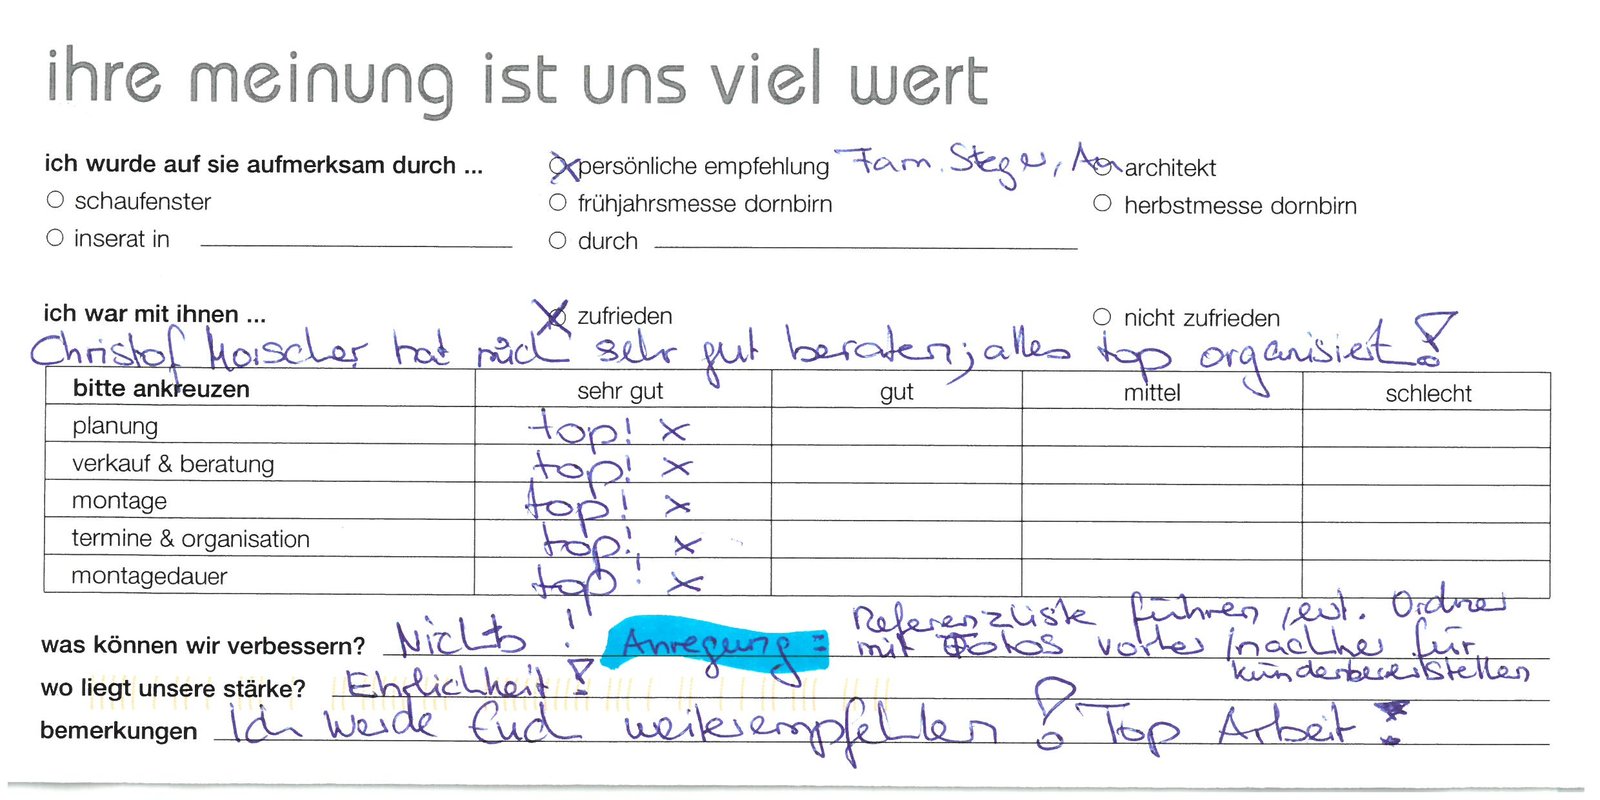 ihre meinung ist uns viel wert
ich wurde auf sie aufmerksam durch ... persönliche empfehlung Fam. Steger, architekt
schaufenster frühjahrsmesse dornbirn herbstmesse dornbirn
inserat in durch
ich war mit ihnen ... zufrieden nicht zufrieden
Christof hat mich sehr gut beraten; alles top organisiert!
bitte ankreuzen sehr gut gut mittel schlecht
planung top! x
verkauf & beratung top! x
montage top! x
termine & organisation top! x
montagedauer top! x
Referenzliste führen, evt. Ordner
was können wir verbessern? Nichts! Anregung = mit Fotos vorher/nachher für
kunden bereitstellen
wo liegt unsere stärke? Ehrlichkeit!
bemerkungen Ich werde Euch weiterempfehlen! Top Arbeit!